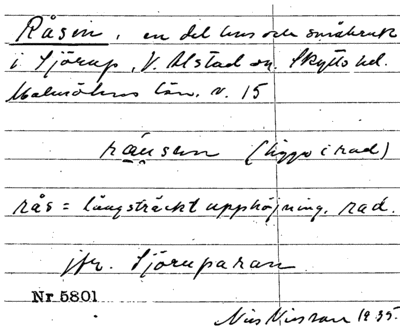 Råsen, en del hus och småbruk
i Sjörup, V. Alstad sn. Skytts hd.
Malmöhus län. v. 15
råusen (ligga i rad)
rås = långsträckt upphöjning, rad.
jfr. Sjöruparan
Nr 5801
Nils Nilsson 1935.